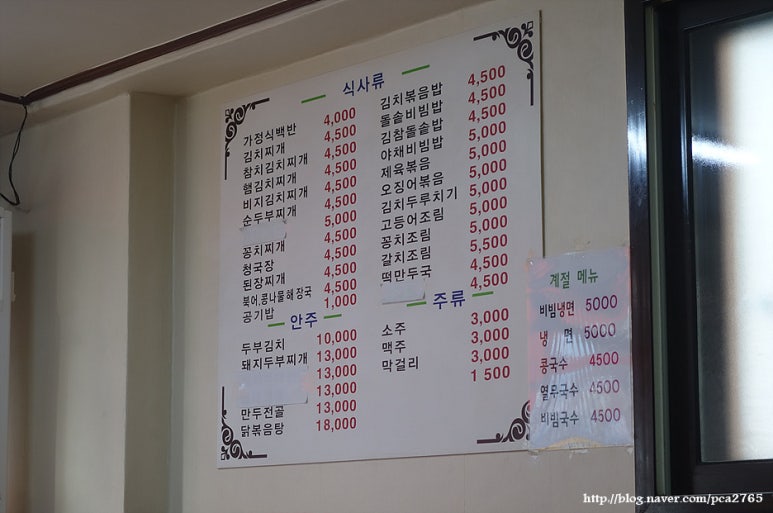 식사류
가정식백반 4,000
김치찌개 4,500
참치김치찌개 4,500
햄김치찌개 4,500
비지김치찌개 4,500
순두부찌개 4,500
5,000
꽁치찌개 4,500
청국장 4,500
된장찌개 4,500
북어,콩나물해장국 4,500
공기밥 1,000
안주
두부김치 10,000
돼지두부찌개 13,000
13,000
13,000
만두전골 13,000
닭볶음탕 18,000
김치볶음밥 4,500
돌솥비빔밥 4,500
김참돌솥밥 4,500
야채비빔밥 5,000
제육볶음 5,000
오징어볶음 5,000
김치두루치기 5,000
고등어조림 5,000
꽁치조림 5,500
갈치조림 5,500
떡만두국 4,500
4,500
주류
소주 3,000
맥주 3,000
막걸리 3,000
1 500
계절 메뉴
비빔냉면 5000
냉 면 5000
콩국수 4500
열무국수 4500
비빔국수 4500
http://blog.naver.com/pca2765